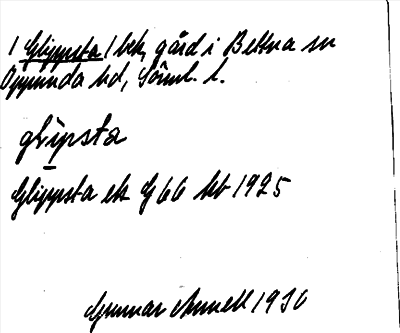 1 Glippsta 1 bek, gård i Bettna sn
Oppunda hd, Söml. l.
glìpsta
Glippsta ek G 66 kb 1925
Gunnar Annell 1930